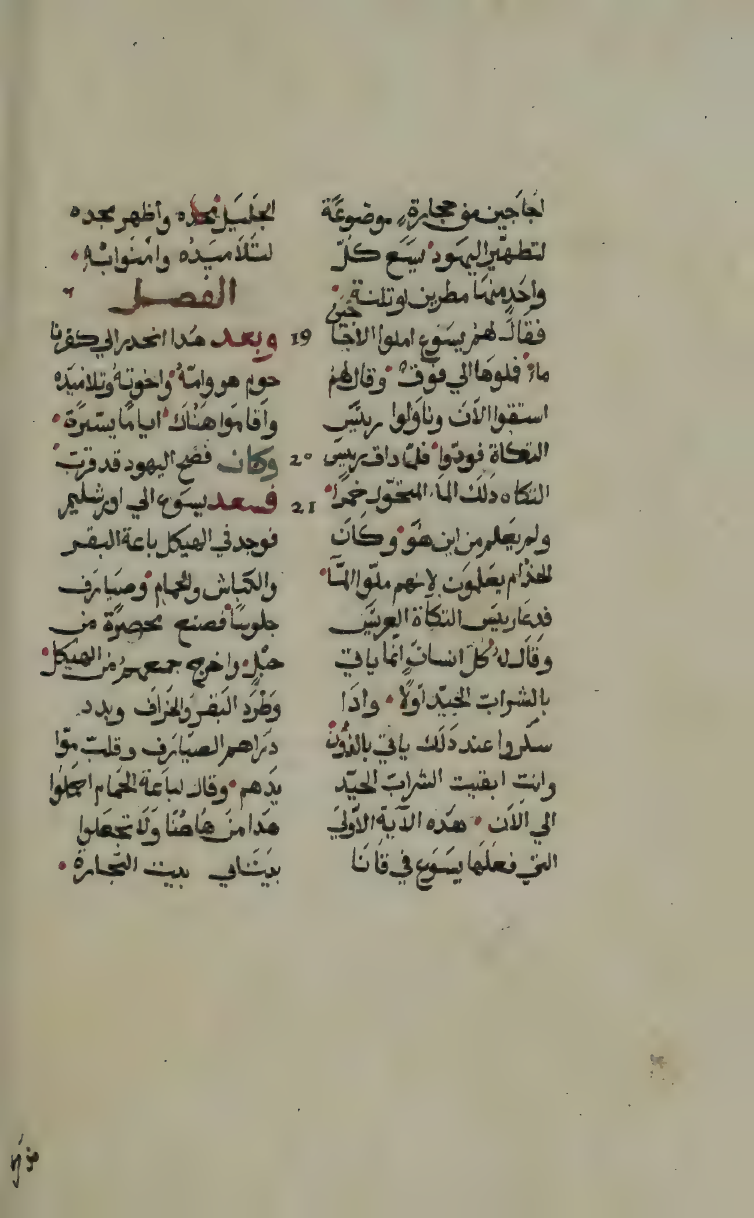 اجاجين من حجارة موضوعة
لتطهير اليهود يسع كل
واحد منها مطرين او تلتة
فقال لهم يسوع املوا الاجاجين
ماء فملوها الي فوق وقال لهم
استقوا الان وناولوا ريئس
التكاة فودوا فلما داق ريس
التكاه دلك الما المتحول خمرا
ولم يعلم من اين هو وكان
الخدام يعلمون لانهم ملوا الما
فدعا رييس التكاة العريس
وقال له كل انسان انما ياتي
بالشراب الجيد اولا وادا
سكروا عند دلك ياتي بالدون
وانت ابقيت الشراب الجيد
الي الان هده الاية الاولي
التي فعلها يسوع في قانا
الجليل واظهر مجده
لتلاميده وامنوا به
الفصل
19 وبعد هدا انحدر الي كفرنا
حوم هو وامه واخوته وتلاميده
واقاموا هناك اياما يسيرة
20 وكان فصح اليهود قد قرب
21 فسعد يسوع الي اورشليم
فوجد في الهيكل باعة البقر
والكباش والحمام وصيارف
جلوسا فصنع محصرة من
حبل واخرج جميعهم من الهيكل
وطرد البقر والخراف وبدد
دراهم الصيارف وقلب موا
يدهم وقال لباعة الحمام احملوا
هدا من هاهنا ولا تجعلوا
بيت ابي بيت التجارة